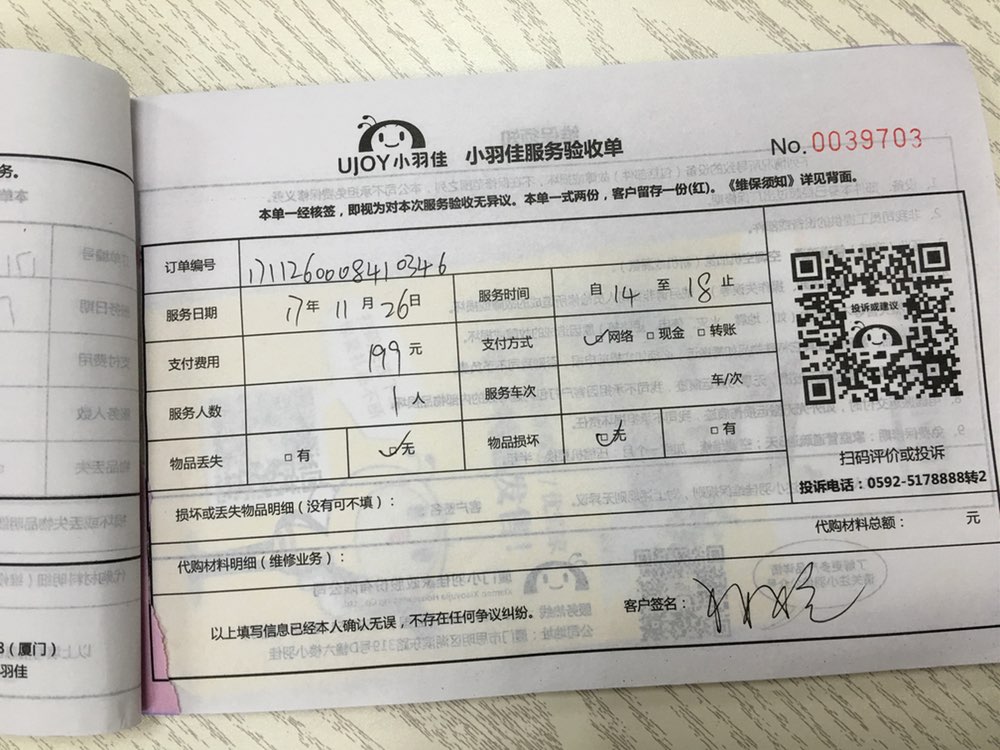 UJOY小羽佳 小羽佳服务验收单
No. 0039703
本单一经核签，即视为对本次服务验收无异议。本单一式两份，客户留存一份(红)。《维保须知》详见背面。
订单编号 171126000841 0346
服务日期 17年 11月 26日 服务时间 自 14 至 18 止
支付费用 199元 支付方式 网络 现金 转账
服务人数 1人 服务车次 车/次
物品丢失 有 无 物品损坏 无 有
投诉或建议
扫码评价或投诉
投诉电话：0592-5178888转2
损坏或丢失物品明细（没有可不填）：
代购材料总额： 元
代购材料明细（维修业务）：
客户签名：
以上填写信息已经本人确认无误，不存在任何争议纠纷。
务。
（厦门）
羽佳